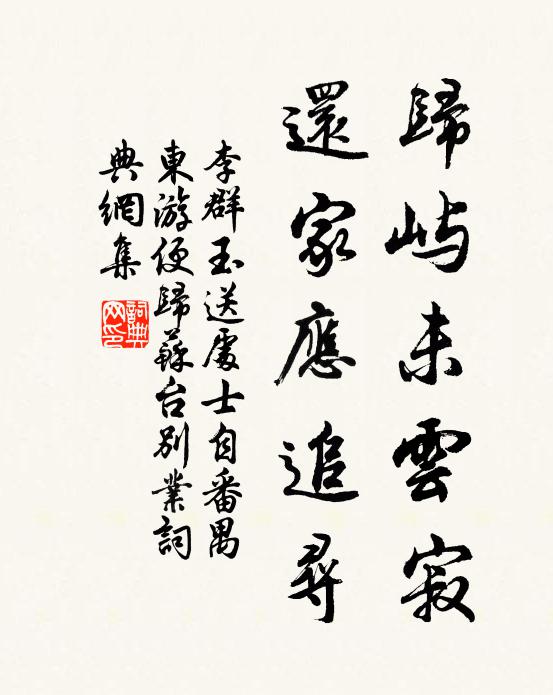 歸嶼未雲寂
還家應追尋
李群玉送處士自番禺
東游便歸蘇台別業詞
典網集
詞典網印